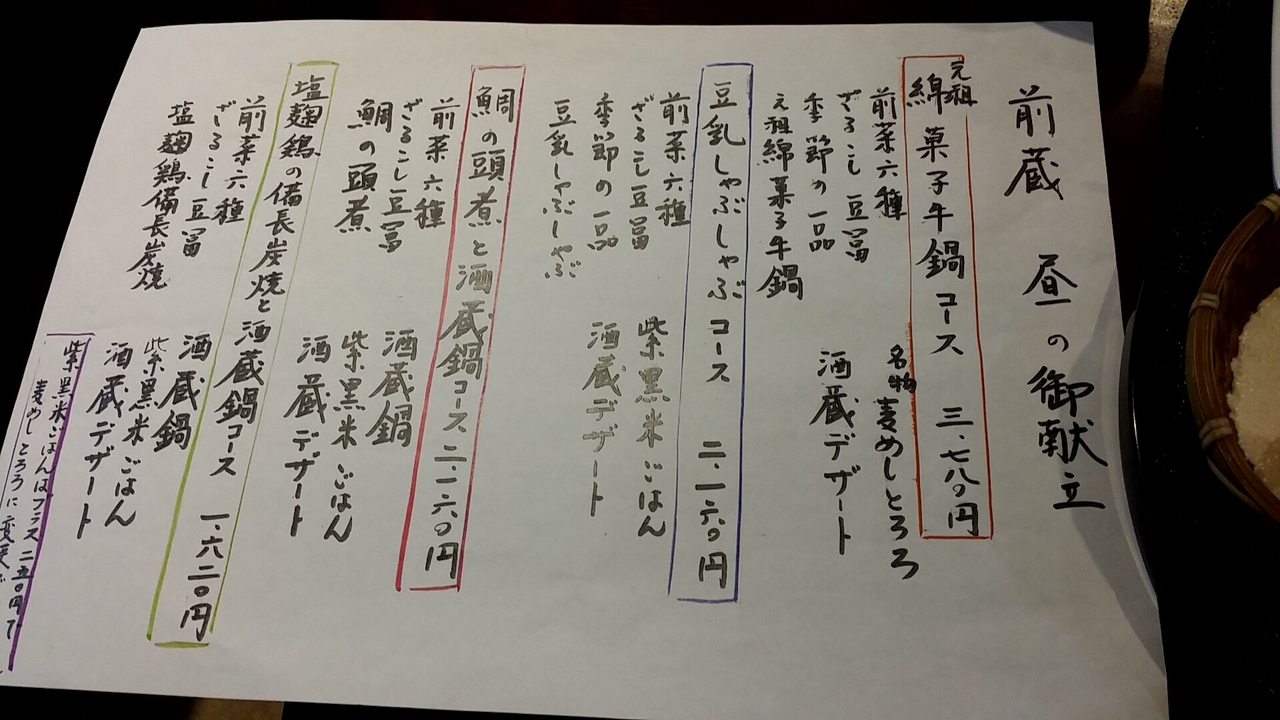 前蔵 昼の御献立
元祖
綿菓子牛鍋コース 三.七八〇円
前菜六種
ざるこし豆富
季節の一品
元祖綿菓子牛鍋
名物麦めしとろろ
酒蔵デザート
豆乳しゃぶしゃぶコース 二.一六〇円
前菜六種
ざるこし豆富
季節の一品
豆乳しゃぶしゃぶ
紫黒米ごはん
酒蔵デザート
鯛の頭煮と酒蔵鍋コース 二.一六〇円
前菜六種
ざるこし豆富
鯛の頭煮
酒蔵鍋
紫黒米ごはん
酒蔵デザート
塩麹鶏の備長炭焼と酒蔵鍋コース 一.六二〇円
前菜六種
ざるこし豆富
塩麹鶏備長炭焼
酒蔵鍋
紫黒米ごはん
酒蔵デザート
紫黒米ごはんはプラス二五〇円で
麦めしとろろに変更